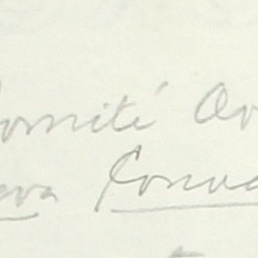 omité Ov
eva Conve